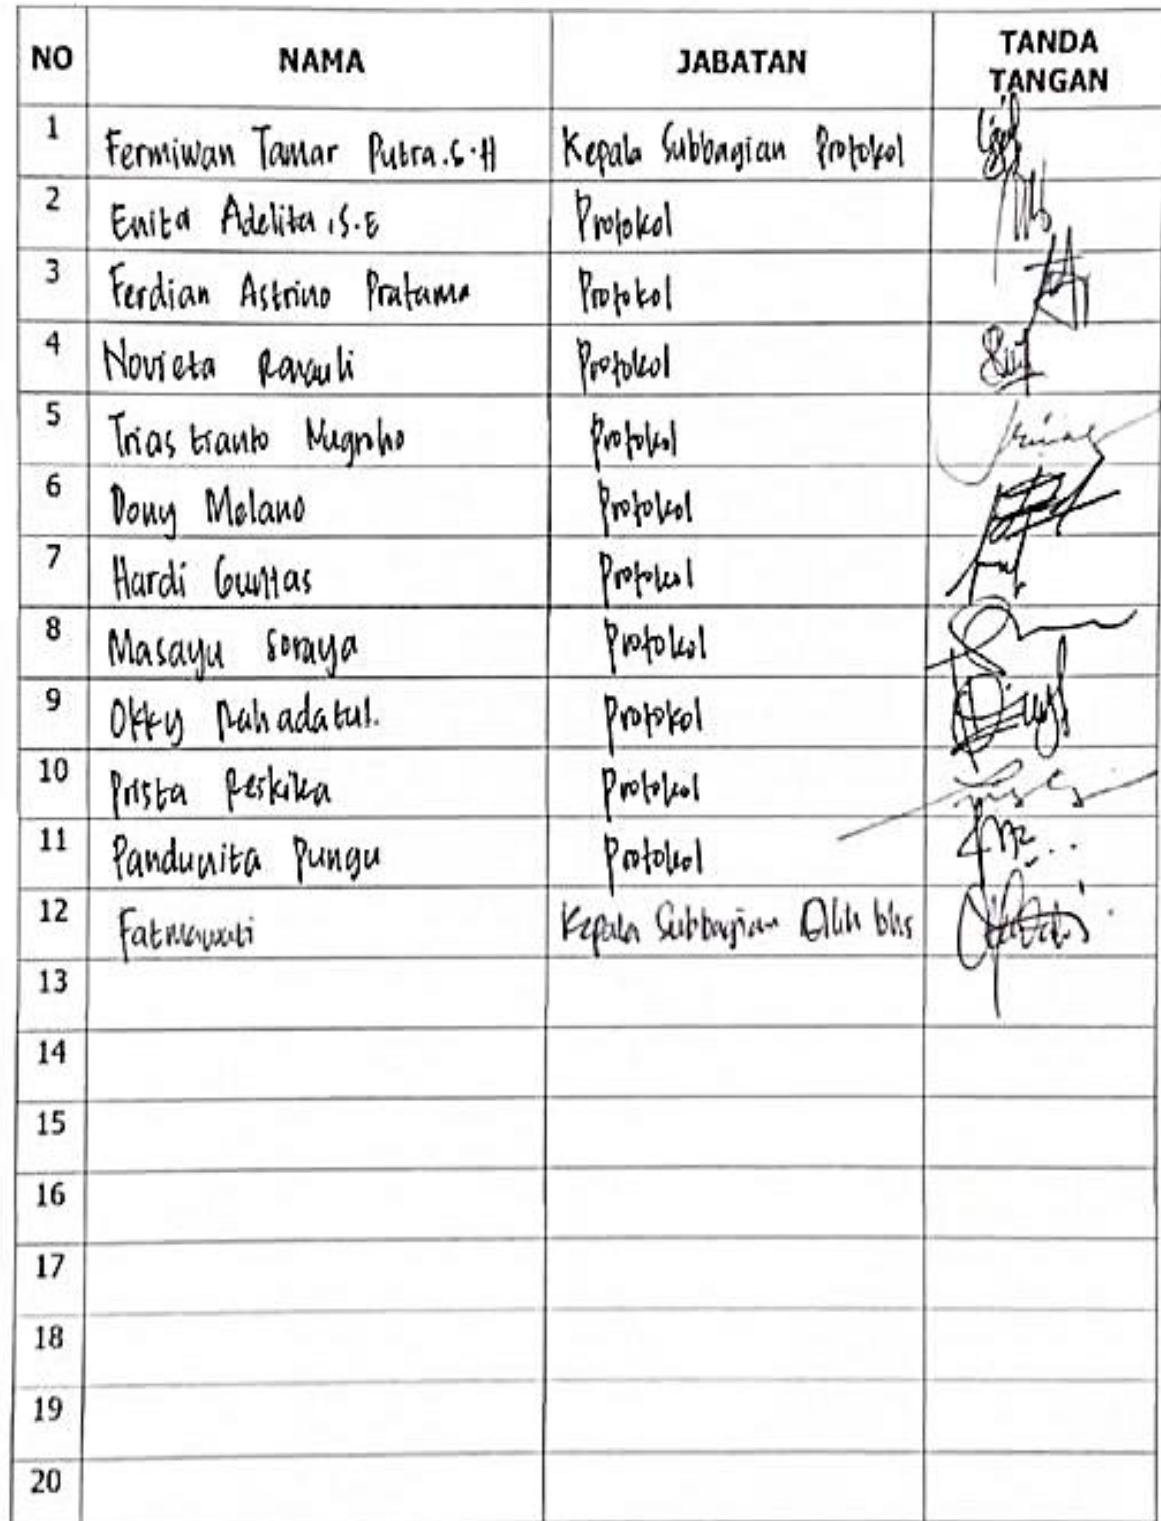 NO NAMA JABATAN TANDA TANGAN
1 Fermiwan Tamar Putra.S.H Kepala Subbagian Protokol
2 Enita Adelita, S.E Protokol
3 Ferdian Astrino Pratama Protokol
4 Novieta Protokol
5 Trias trianto Nugroho Protokol
6 Dony Melano Protokol
7 Hardi Protokol
8 Masayu Soraya Protokol
9 Okky Rahadatul. Protokol
10 Prista Reskika Protokol
11 Pungu Protokol
12 Fatmawati Kepala Subbagian bhs
13
14
15
16
17
18
19
20